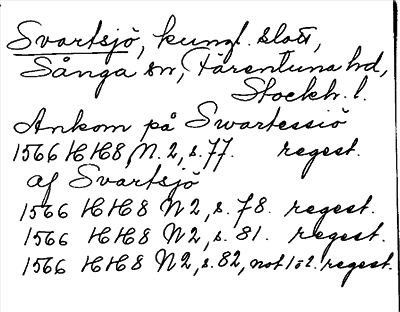 Svartsjö, kungl. slott,
Sånga sn, Färentuna hd,
Stockh. l.
Ankom på Swartessiö
1566 HH8, N. 2, s. 77. regest.
af Svartsjö
1566 HH8 N 2, s. 78. regest.
1566 HH8 N 2, s. 81. regest.
1566 HH8 N 2, s. 82, not 1o2. regest.